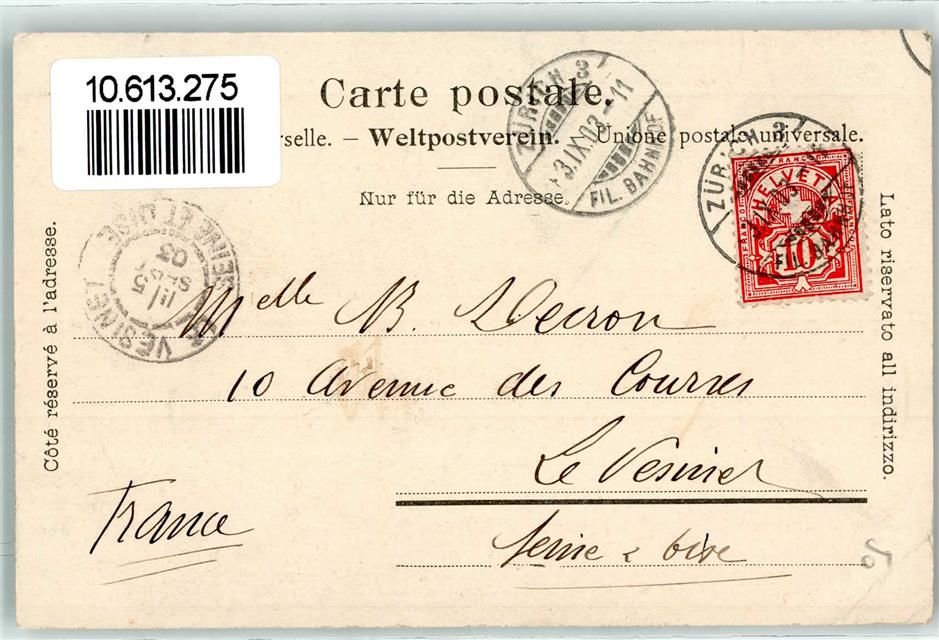 10.613.275
Carte postale.
rselle. – Weltpostverein. – Unione postale universale.
Nur für die Adresse.
ZÜRICH 3
3.IX.03.-11
FIL. BAHNHOF
ZÜRICH 3
FIL. BAHN
FRANCO
HELVETIA
10
Côté réservé à l'adresse.
Lato riservato all indirizzo.
LE VESINET
SEINE ET OISE
5
SEPT
03
Melle B. Decron
10 Avenue des Courses
Le Vesinet
France
Seine & Oise
50